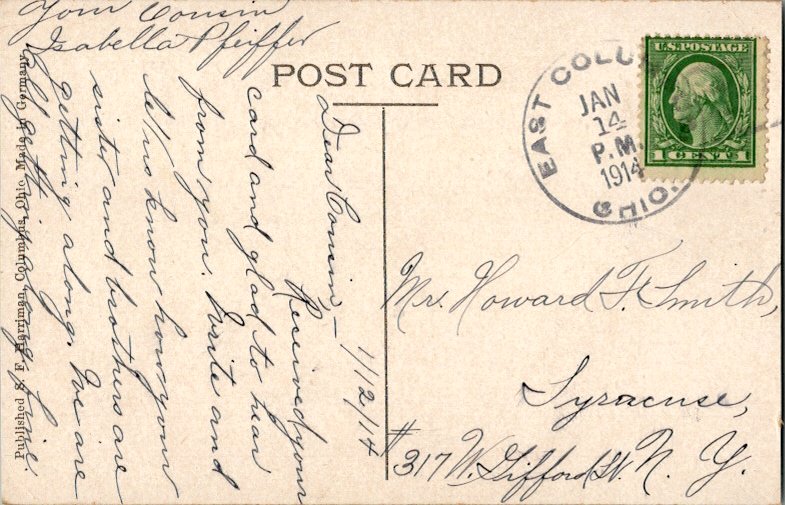 POST CARD
U.S. POSTAGE
1 CENT 1
EAST COLU
JAN
14
P.M.
1914
OHIO.
1/12/14
Dear Cousin—
Received your
card and glad to hear
from you. Write and
let us know how your
sister and brothers are
getting along. We are
all getting along fine.
Your Cousin
Isabella Pfeiffer
Mr. Howard F. Smith,
Syracuse,
#317 W. Gifford St. N. Y.
Published S. F. Harriman, Columbus, Ohio. Made in Germany